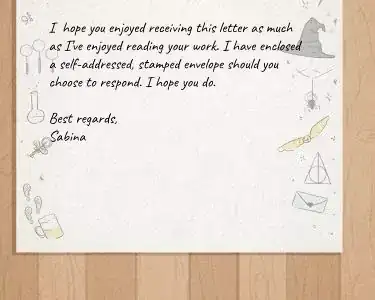 I hope you enjoyed receiving this letter as much
as I've enjoyed reading your work. I have enclosed
a self-addressed, stamped envelope should you
choose to respond. I hope you do.
Best regards,
Sabina